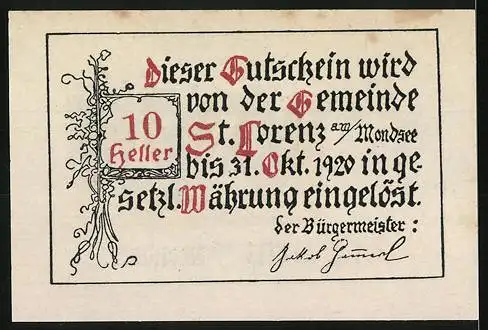 Dieser Gutschein wird
von der Gemeinde
10
Heller
St. Lorenz am/Mondsee
bis 31. Okt. 1920 in ge-
setzl. Währung eingelöst.
der Bürgermeister:
Jakob